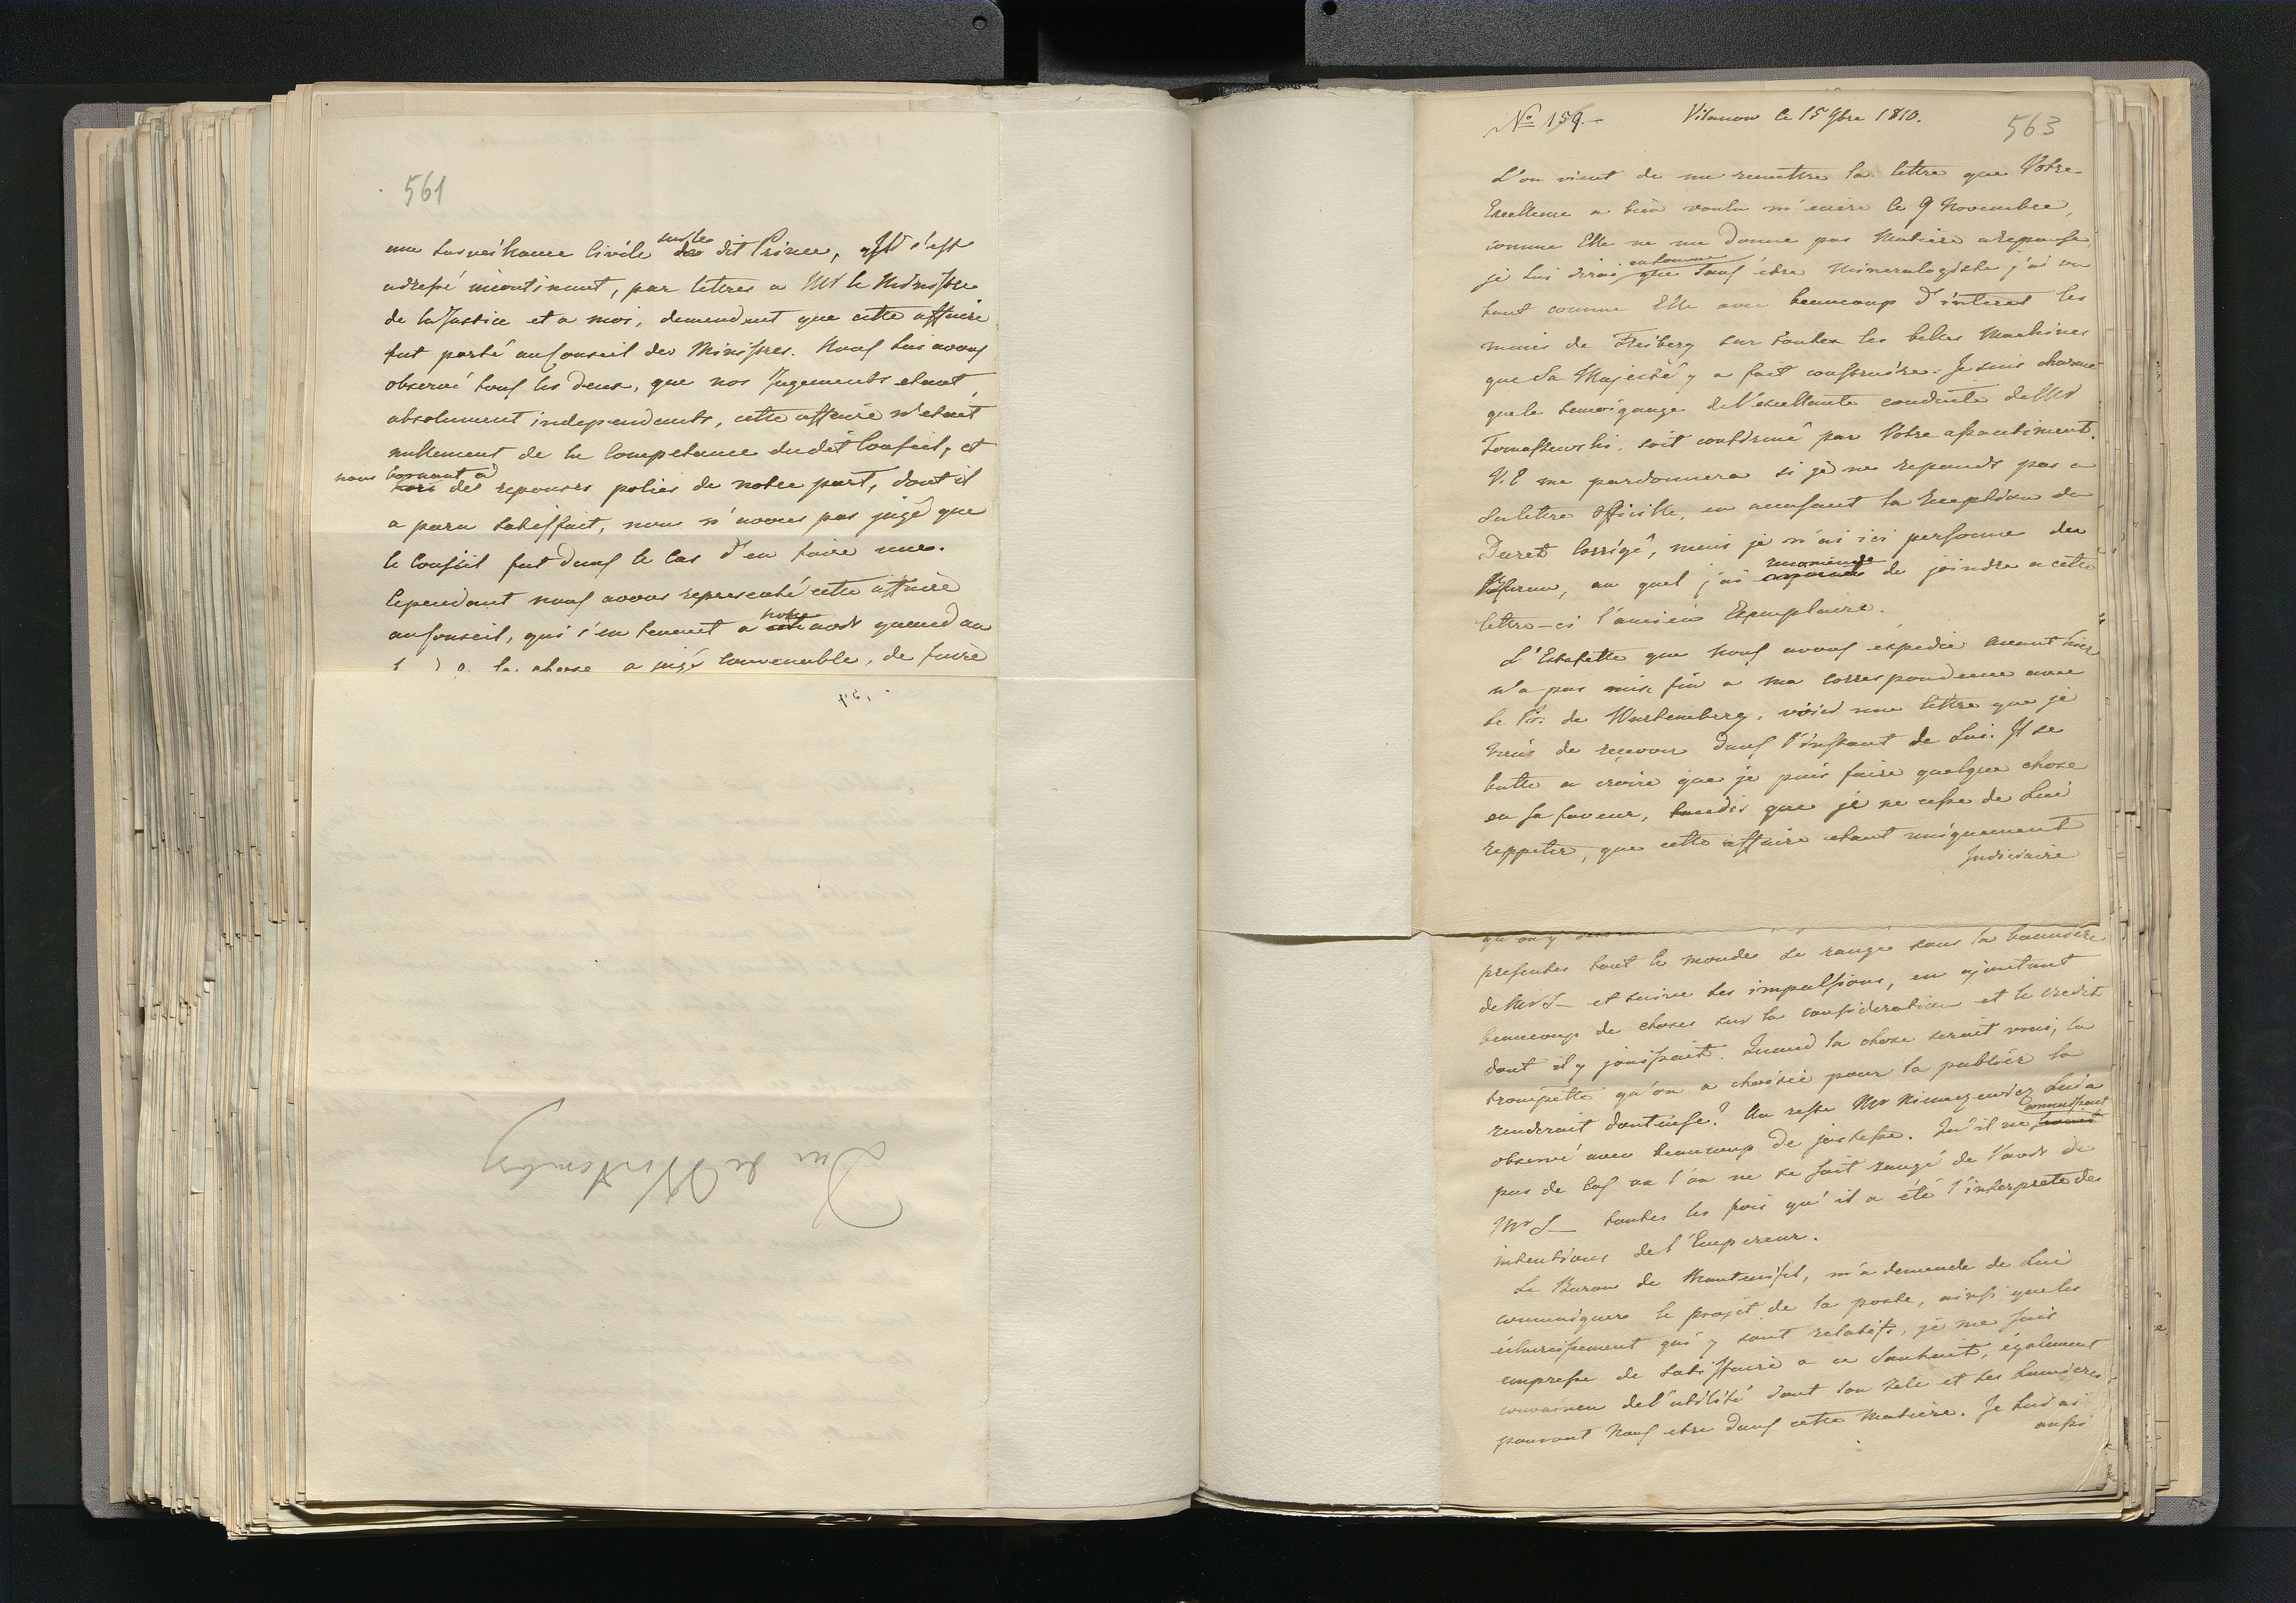 561
une surveillance Civile sur le dit Prince, il s'est
adressé incontinant, par lettres a Mr le Ministre
de la Justice et a moi, demendant que cette affaire
fut porté au Conseil des Ministres. Nous lui avons
observé tous les deux, que nos Jugements etant
absolument independents, cette affaire n'etait
nullement de la Competence du dit Conseil, et
nous bornant à des reponses polies de notre part, dont il
a paru satisffait, nous n'avons pas jugé que
le Conseil fut dans le Cas d'en faire une.
Cependant nous avons representé cette affaire
au Conseil, qui s'en tenant a notre avis quand au
la chose a jugé Convenable, de faire
Duc de Wirtemberg
No 159.- Vilanow le 15 9bre 1810.
563
L'on vient de me remettre la lettre que Votre
Excellence a bien voulu m'ecrire le 9 Novembre,
comme Elle ne me donne pas Matiere a reponse,
je lui dirai que sans être Mineralogiste j'ai vu
tout comme Elle avec beaucoup d'interet les
mines de Freiberg sur toutes les belles Machines
que Sa Majesté y a fait construire. Je suis charmé
que le temoignage de l'excellante conduite de Mr
Tomaszewski, soit confirmé par Votre assentiment.
V. E me pardonnera si je ne reponds pas a
sa lettre officielle, en accusant la Reception du
Decret Corrigé, mais je n'ai ici personne du
Bureau, au quel j'ai recomandé de joindre a cette
lettre-ci l'ancien Exemplaire.
L'Estafette que nous avons expedié avant hier
n'a pas mis fin a ma correspondence avec
le Pr. de Wurtemberg, voici une lettre que je
viens de recevoir dans l'instant de Lui. Il se
butte a croire que je puis faire quelque chose
en sa faveur, tandis que je ne cesse de Lui
reppeter, que cette affaire etant uniquement
Judiciaire
qu'on y
presentes tout le monde se range sous la banniere
de Mr S— et suive ses impulsions, en ajoutant
beaucoup de choses sur la consideration et le credit
dont il y jouissait. Quand la chose serait vraie, la
trompette qu'on a choisie pour la publier la
renderait douteuse? Au reste Mr Niemcewicz Lui a
observé avec beaucoup de justesse. Qu'il ne connaissait
pas de Cas ou l'on ne se soit rangé de l'avis de
Mr S— toutes les fois qu'il a été l'interprete des
intentions de l'Empereur.
Le Baron de Manteufel, m'a demandé de Lui
communiquer le projet de la poste, ainsi que les
eclaircissement qui y sont relatifs, je me suis
empressé de satisffaire a ce Souhait, également
convaincu de l'utilité dont son zele et ses lumieres
pouvant nous etre dans cette matiere. Je Lui ai
aussi